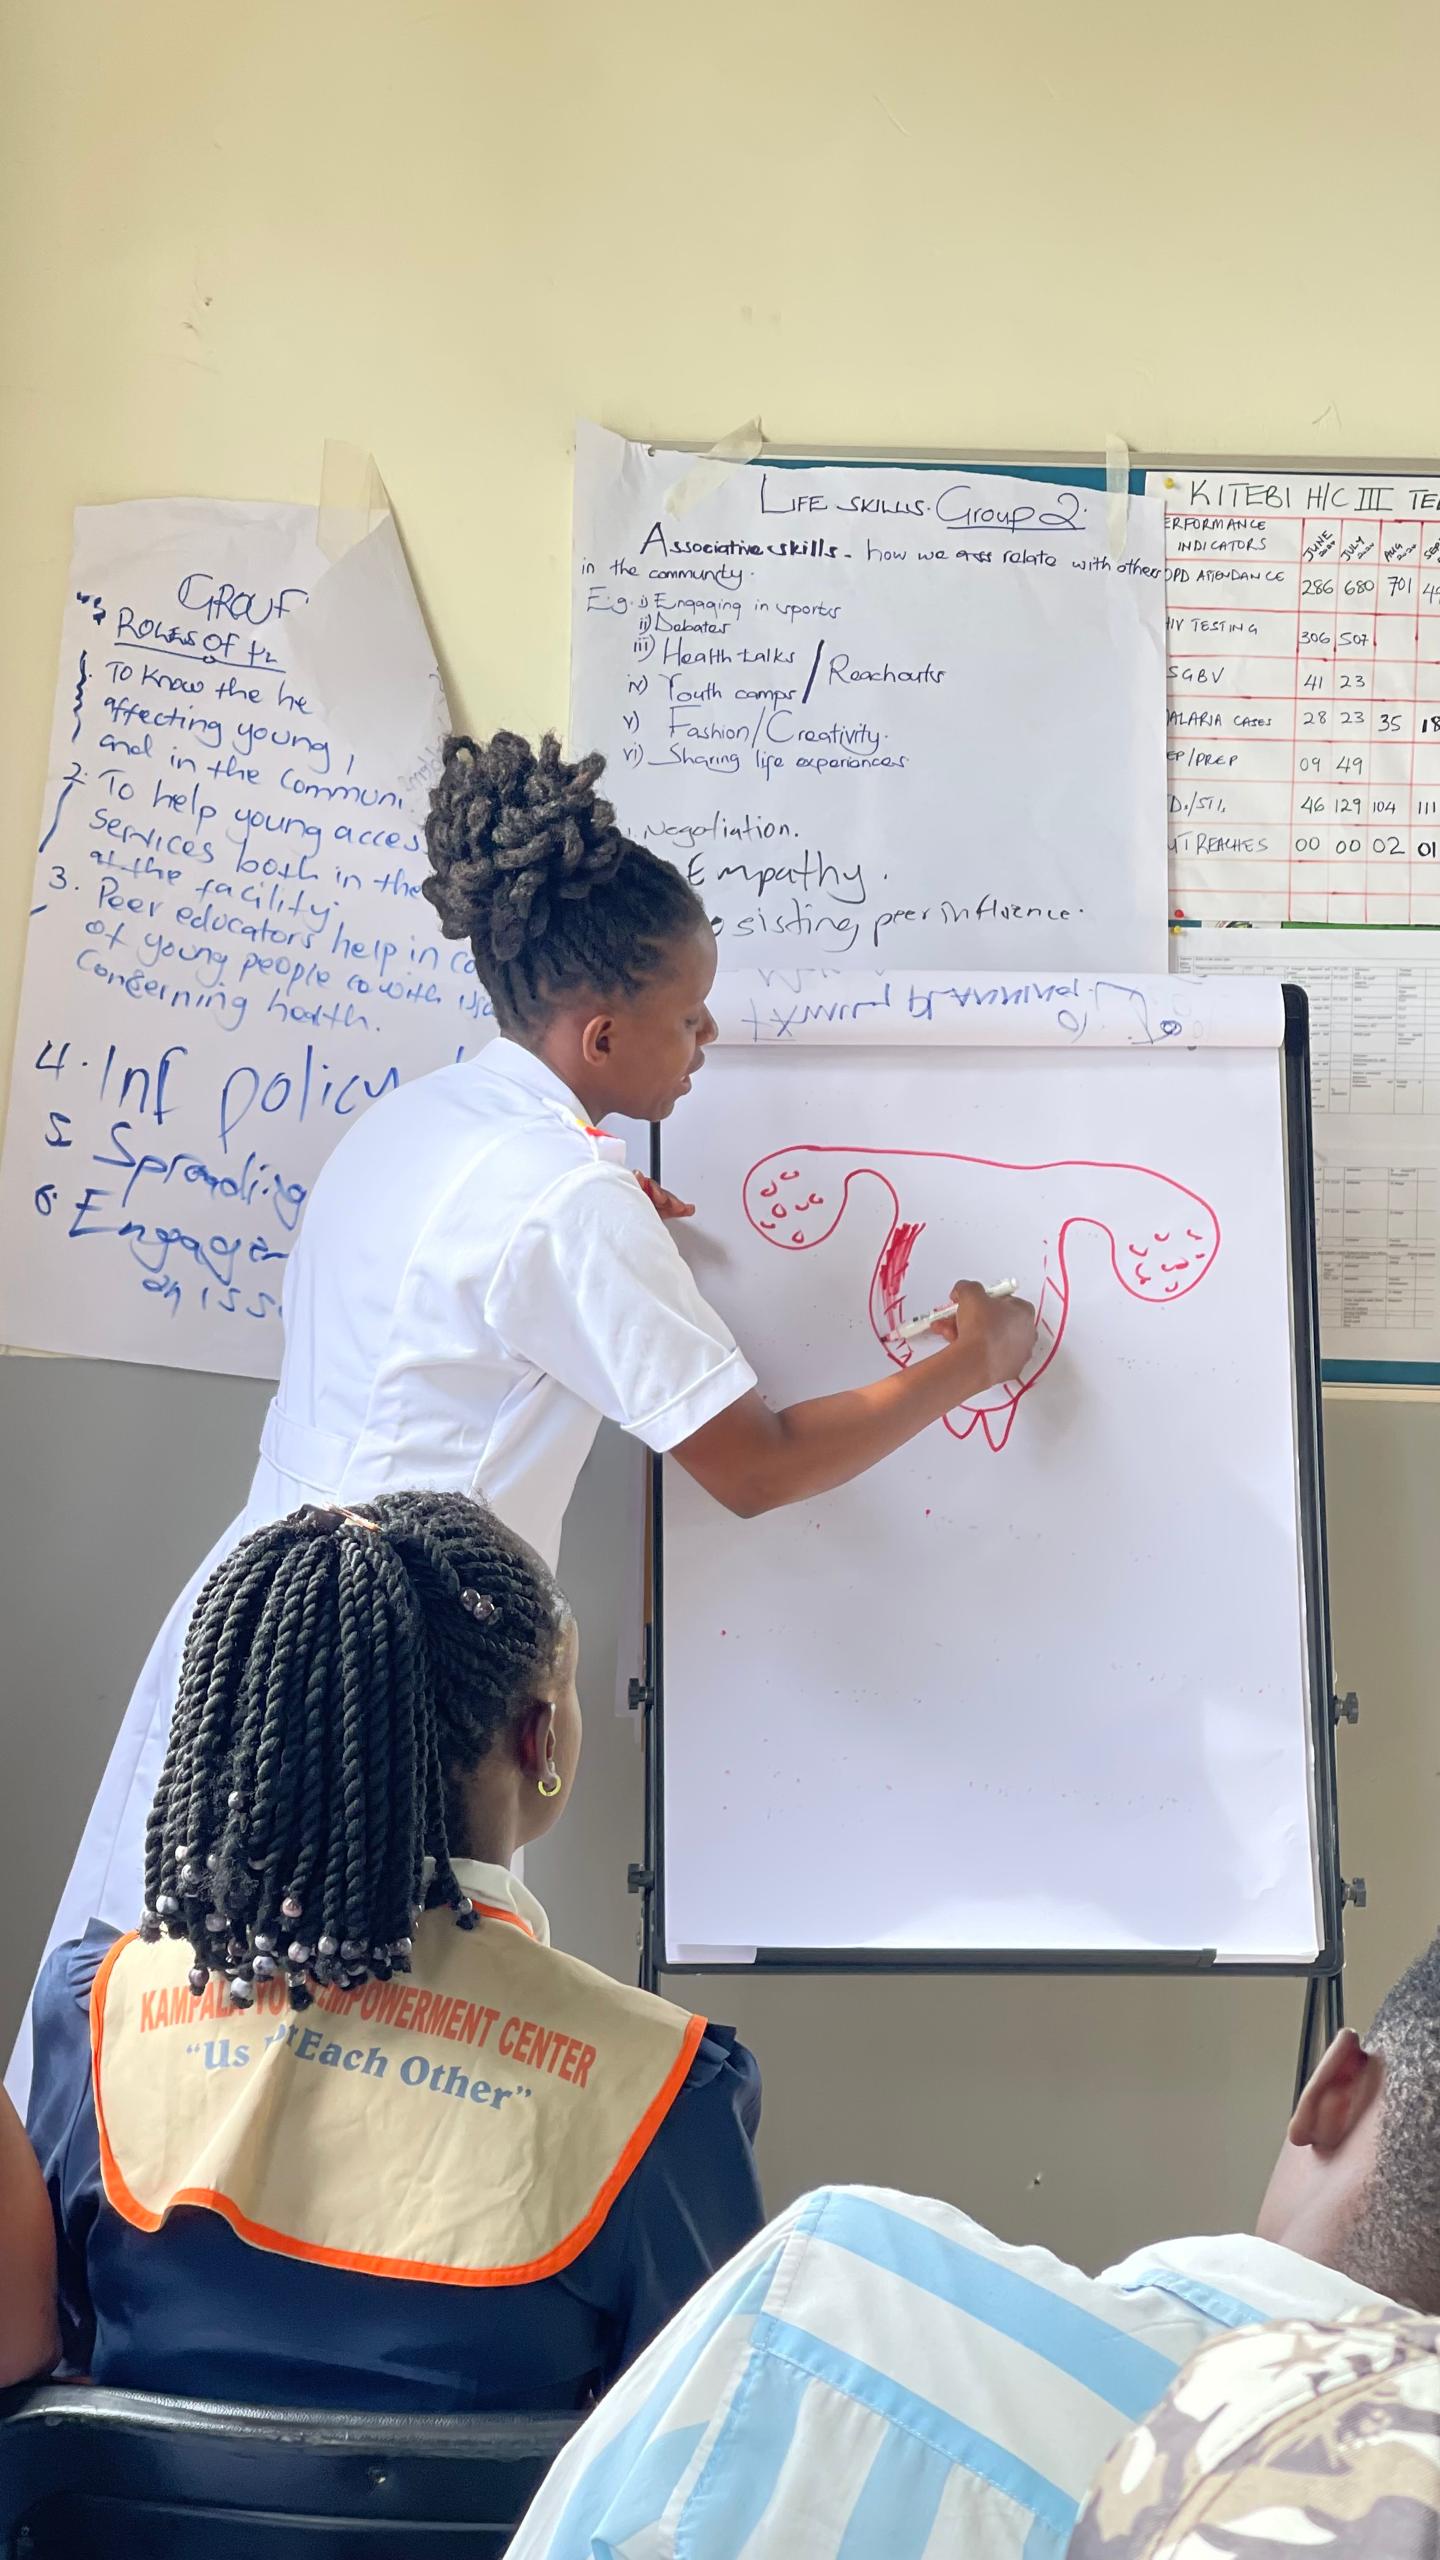 GROUP
ROLES OF
1. To know the he
affecting young
and in the communi
2. To help young acces
services both in the
at the facility.
3. Peer educators help in co
of young people with
Concerning health.
4. Inf policy
5. Spreading
6. Engagin
an iss
LIFE SKILLS. Group 2.
Associative skills - how we relate with others
in the community.
E.g. i) Engaging in sports
ii) Debates
iii) Health talks / Reachouts
iv) Youth camps
v) Fashion/Creativity.
vi) Sharing life experiences
Negotiation.
Empathy.
sisting peer influence.
KITEBI H/C III TE
ERFORMANCE INDICATORS JUNE JULY AUG SEP
OPD ATTENDANCE 286 680 701
HIV TESTING 306 507
SGBV 41 23
ALARIA CASES 28 23 35 18
EP/PREP 09 49
D./STI. 46 129 104 111
UTREACHES 00 00 02 01
KAMPALA YO EMPOWERMENT CENTER
"Us Each Other"